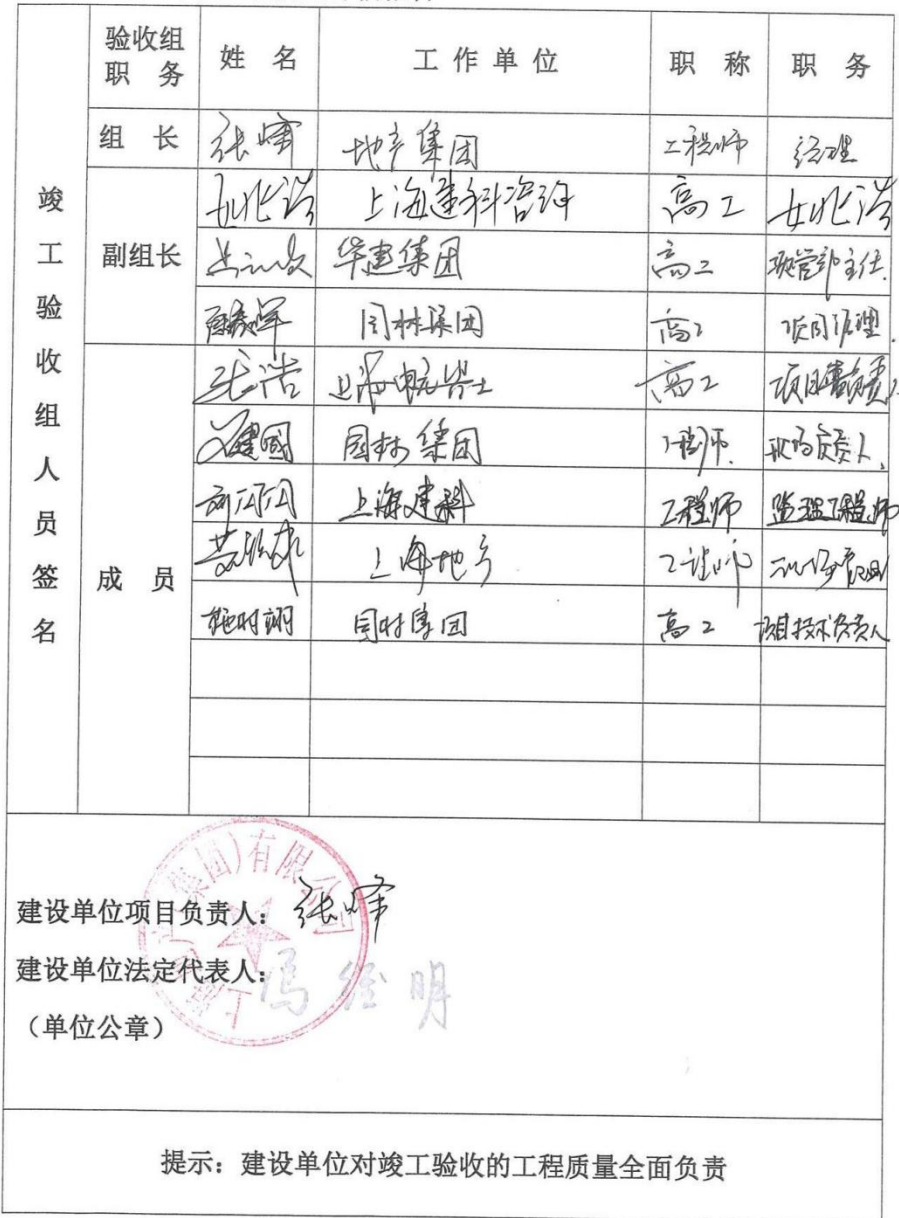 验收组职 务 姓 名 工 作 单 位 职 称 职 务
竣工验收组人员签名
组 长 张峰 地产集团 工程师 经理
副组长 上海建科咨询 高工
华建集团 高工 项管部主任
园林集团 高工 项目经理
成 员 张浩 高工
建国 园林集团 工程师 现场负责人
上海建科 工程师 监理工程师
上海地产 工程师
施时翊 园林集团 高工 项目技术负责人
建设单位项目负责人:张峰
建设单位法定代表人:冯经明
(单位公章)
提示:建设单位对竣工验收的工程质量全面负责